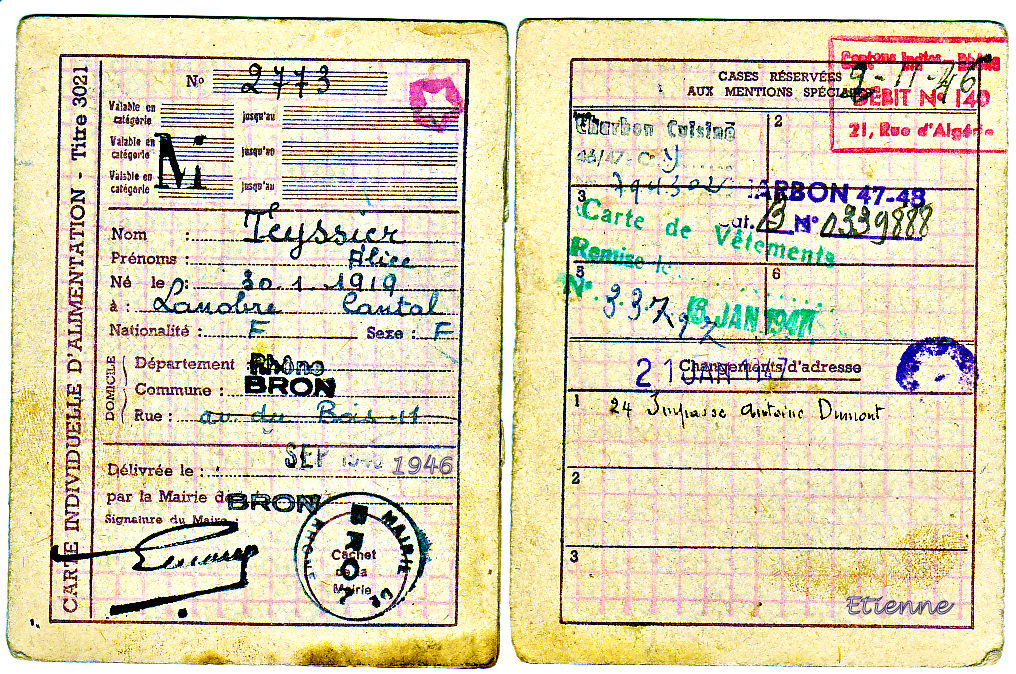 CARTE INDIVIDUELLE D'ALIMENTATION - Titre 3021
No 2773
Valable en catégorie jusqu'au
Valable en catégorie M jusqu'au
Valable en catégorie jusqu'au
Nom : Teyssier
Prénoms : Alice
Né le : 30 1 1919
à : Lanobre Cantal
Nationalité : F Sexe : F
DOMICILE
Département : Rhône
Commune : BRON
Rue : av du Bois 11
Délivrée le : SEP 1946
par la Mairie de BRON
Signature du Maire
Cachet de la Mairie
MAIRIE DE BRON
RHONE
CASES RÉSERVÉES
AUX MENTIONS SPÉCIALES
9-11-46
DEBIT No 140
21, Rue d'Algérie
Charbon Cuisine
46/47
2
3
CHARBON 47-48
Cat. B No 0339888
Carte de Vêtements
Remise le
5
6
No. 337.197
13 JAN 1947
21 JAN 1947
Changements d'adresse
1 24 Impasse Antoine Dumont
2
3
Etienne